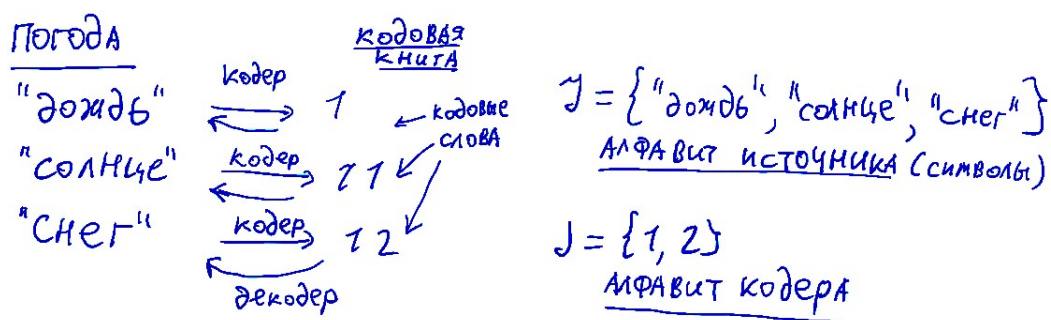 ПОГОДА
КОДОВАЯ
КНИГА
"дождь" кодер 1
кодовые
слова
"солнце" кодер 11
"снег" кодер 12
декодер
Y = {"дождь", "солнце", "снег"}
АЛФАВИТ ИСТОЧНИКА (символы)
J = {1, 2}
АЛФАВИТ кодерА